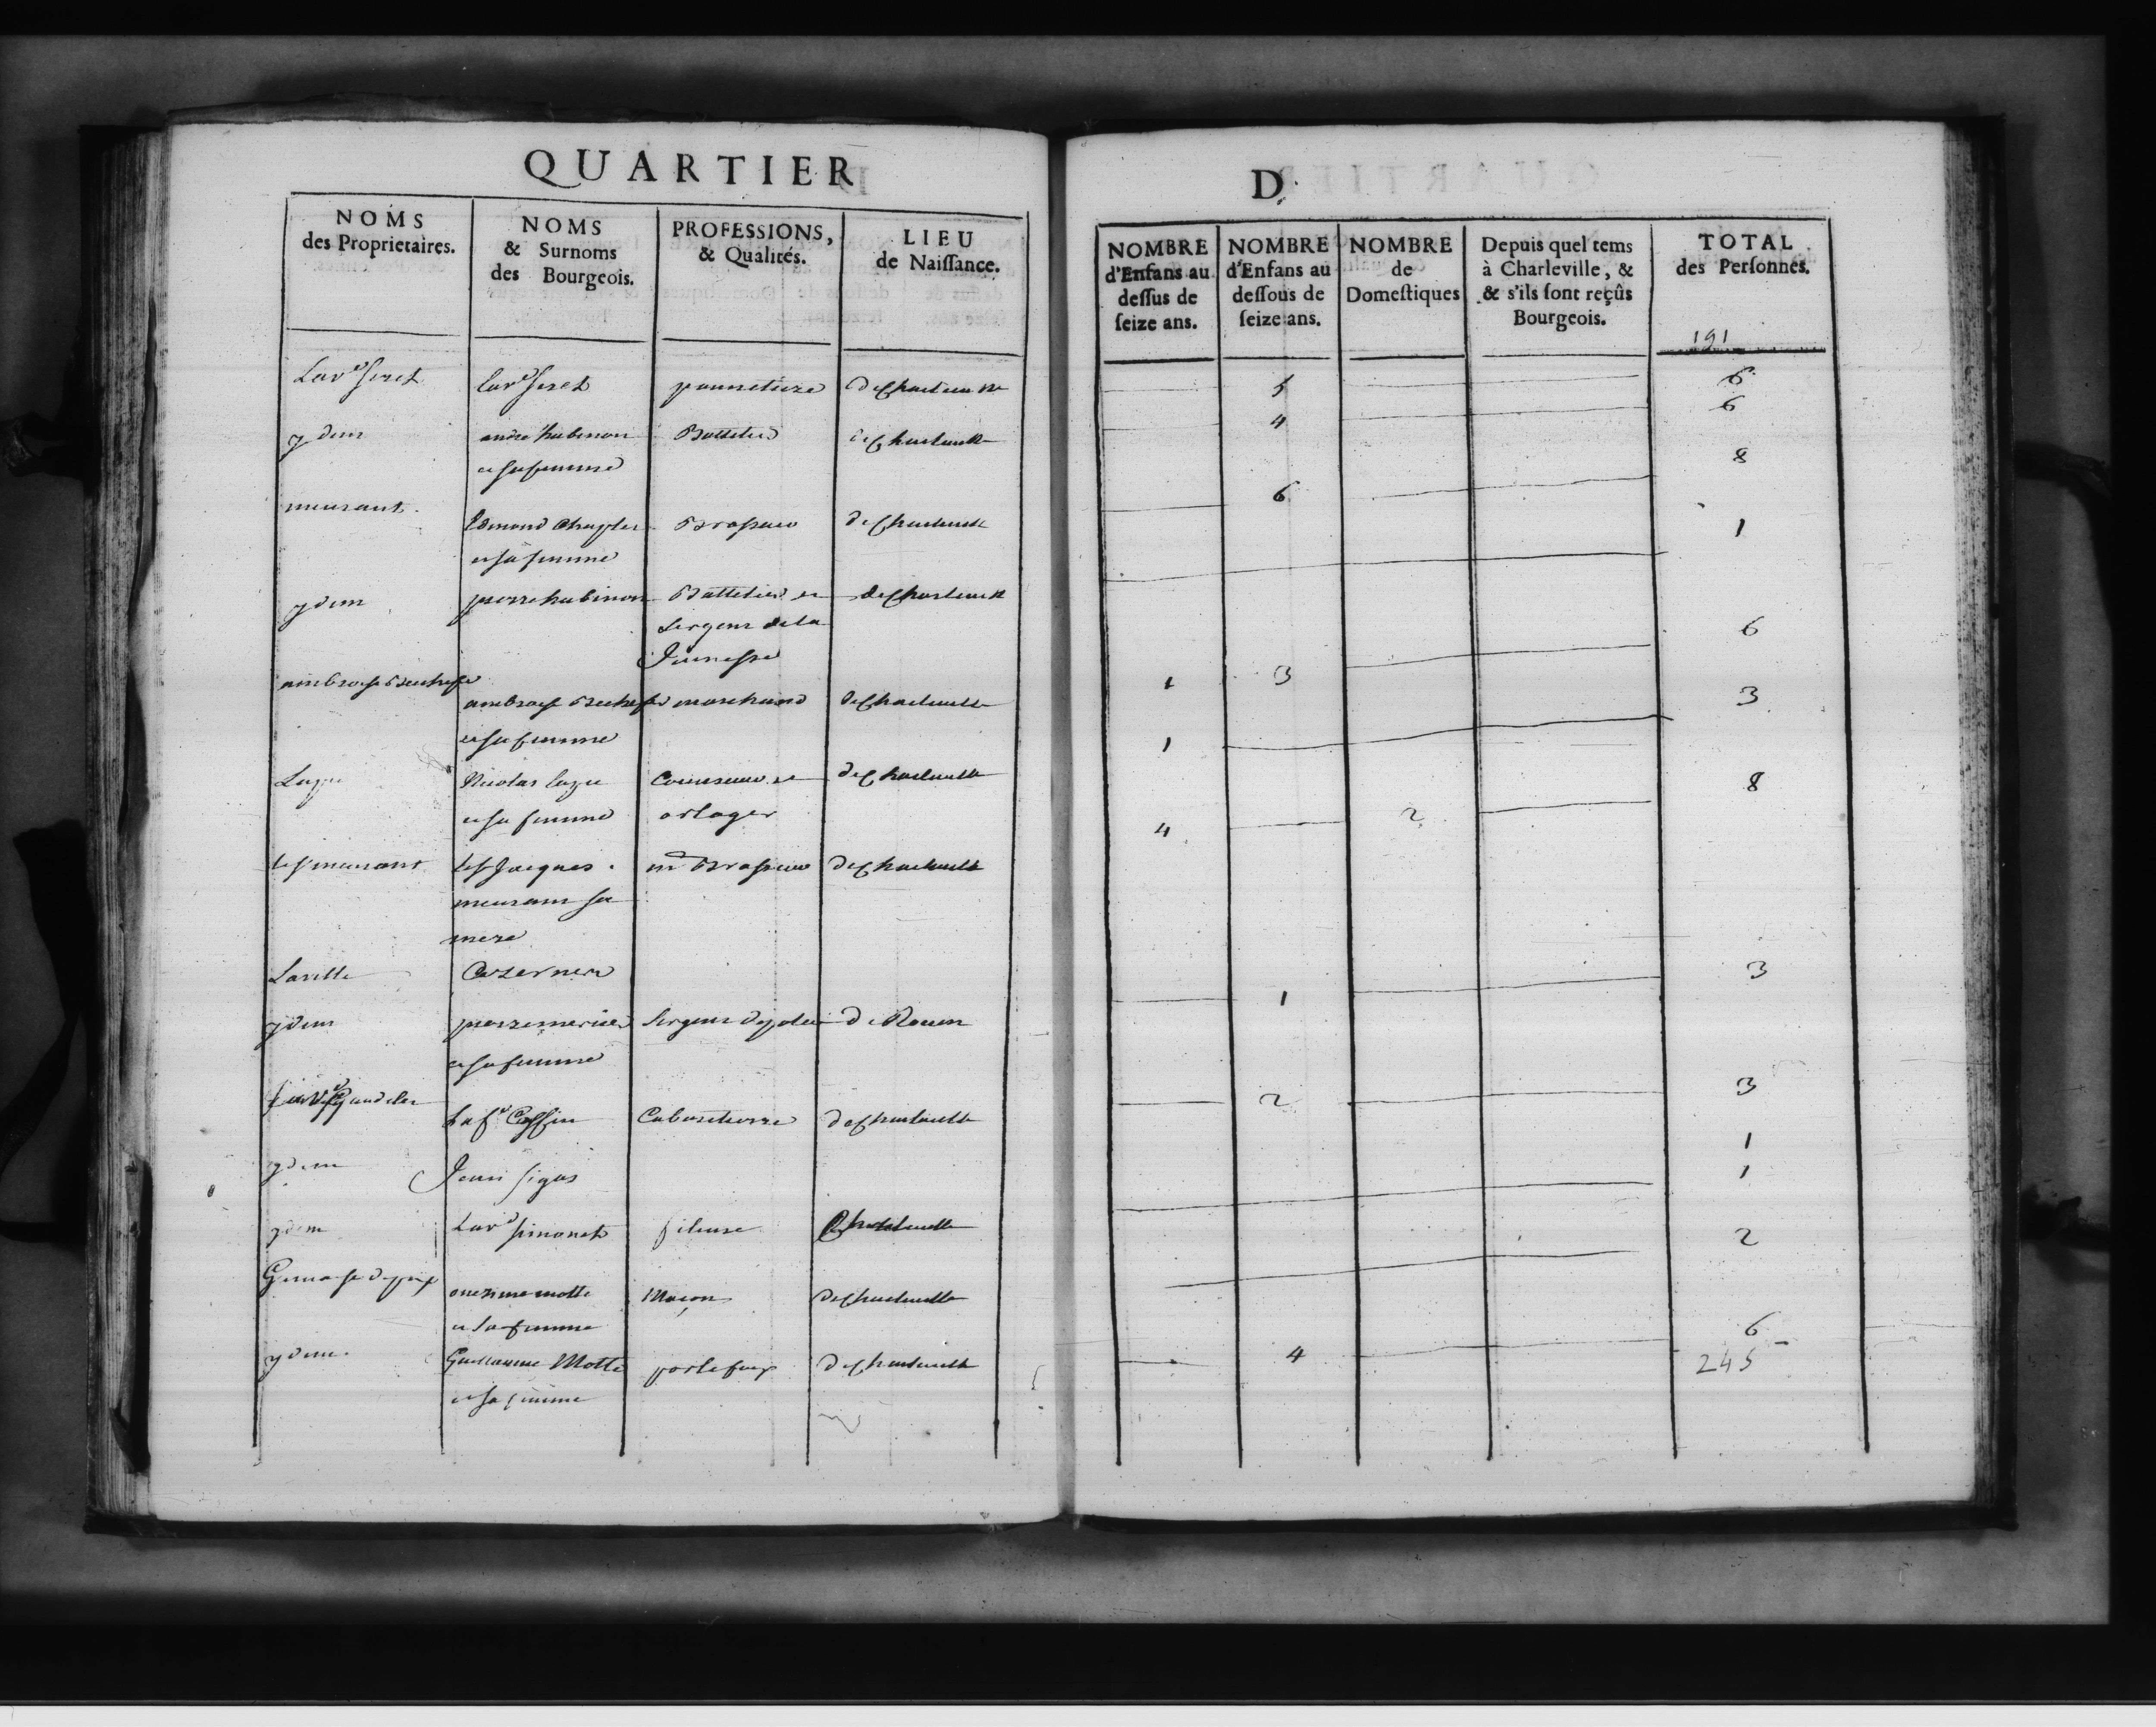 QUARTIER
NOMS
des Proprietaires.
NOMS
& Surnoms
des Bourgeois.
PROFESSIONS,
& Qualités.
LIEU
de Naiſſance.
Lav.e ſeret lav.e ſeret de Charleville
ydem andre hubinon Battelier de Charleville
et ſa femme
meurant. Edmond Braſſeur de Charleville
et ſa femme
ydem pierre hubinon Battelier et de Charleville
Sergent de la
Jeunesse
ambroise ambroise marchand de Charleville
et ſa femme
Nicolas et de Charleville
et ſa femme orloger
le s.r meurant le s.r Jacques m.d Braſſeur de Charleville
meurant ſa
mere
Laville Cazernier
ydem pierre mercier Sergent de police de Rouen
et ſa femme
Cabaretiere de Charleville
ydem Jean ſigas
ydem Lav.e ſimonet fileuse Charleville
motte Maçon de Charleville
et ſa femme
ydem. Guillaume Motte portefaix de Charleville
et ſa femme
D.
NOMBRE
d'Enfans au
deſſus de
ſeize ans.
NOMBRE
d'Enfans au
deſſous de
ſeize ans.
NOMBRE
de
Domeſtiques
Depuis quel tems
à Charleville, &
& s'ils ſont reçûs
Bourgeois.
TOTAL
des Perſonnes.
191
5 6
4 6
6 8
1
1 3 6
1 3
4 2 8
1 3
2 3
1
1
2
4 6
245